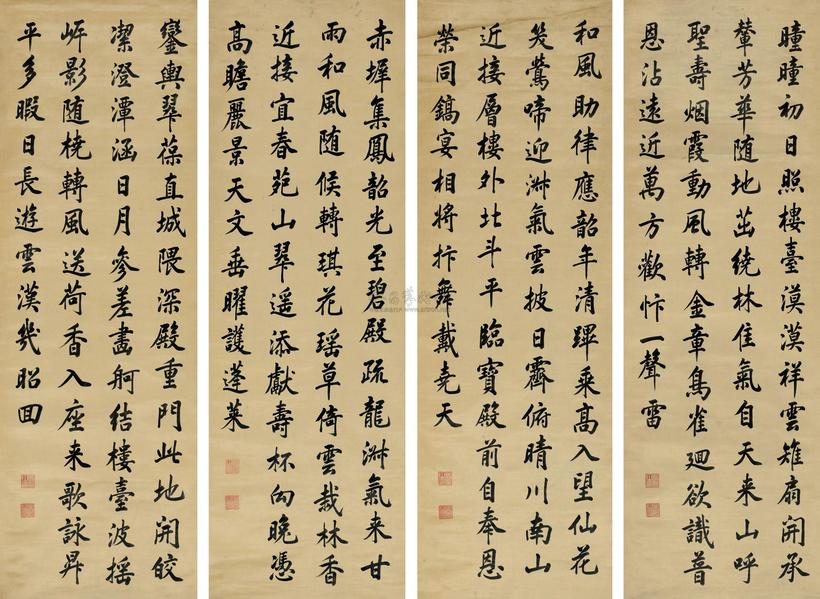 曈曈初日照樓臺漠漠祥雲雉扇開承
輦芳華随地茁繞林佳氣自天来山呼
聖壽烟霞動風轉金章鳥雀廻欲識普
恩沾遠近萬方歡忭一聲雷
和風助律應韶年清蹕乘髙入望仙花
笑鶯啼迎淋氣雲披日霽俯晴川南山
近接層樓外北斗平臨寶殿前自奉恩
榮同鎬宴相將抃舞戴堯天
赤墀集鳳韶光至碧殿疏龍淋氣来甘
雨和風随候轉琪花瑶草倚雲栽林香
近接宜春苑山翠遥添獻壽杯向晚憑
髙瞻麗景天文垂曜護蓬萊
鑾輿翠葆直城隈深殿重門此地開皎
潔澄潭涵日月參差畵舸結樓臺波摇
㟁影随橈轉風送荷香入座来歌詠昇
平多暇日長遊雲漢幾昭回